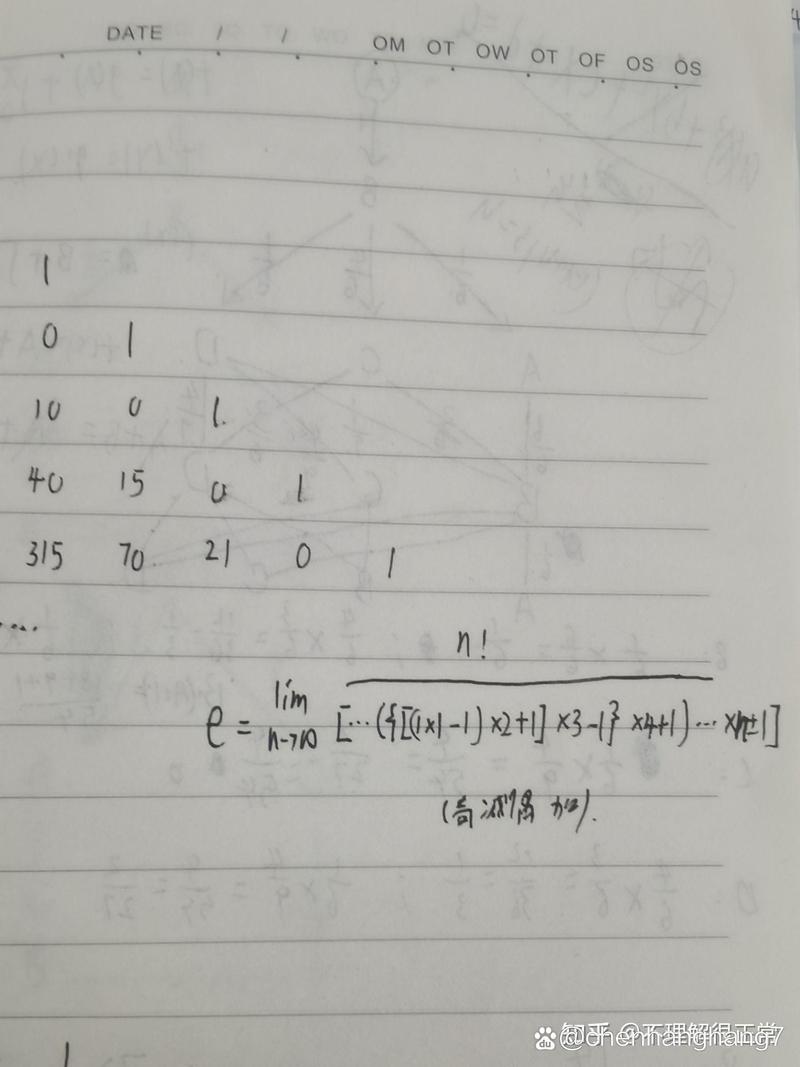 DATE / /
OM OT OW OT OF OS OS
1
0 1
10 0 1
40 15 0 1
315 70 21 0 1
....
n!
e = lim n→∞ [···({[(1×1-1)×2+1]×3-1}×4+1)···×n±1]
(奇减偶加).
1
知乎 @不理解很正常
@chenhanghang7